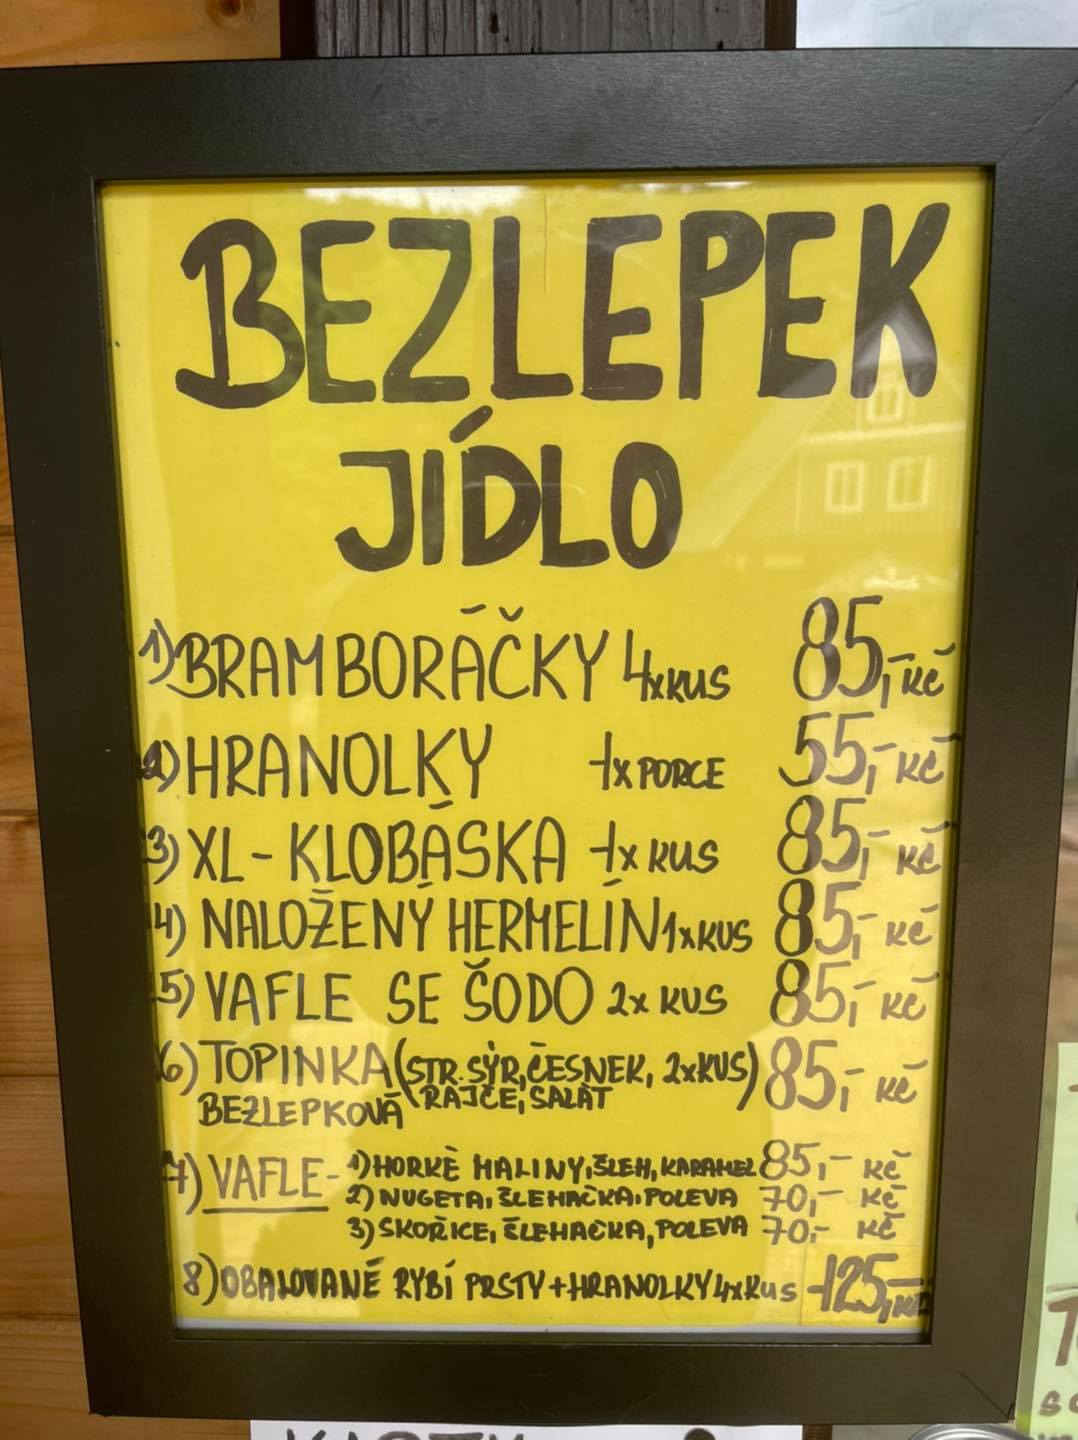 BEZLEPEK
JÍDLO
1) BRAMBORÁČKY 4xKUS 85,- Kč
2) HRANOLKY 1x PORCE 55,- Kč
3) XL - KLOBÁSKA 1x KUS 85,- Kč
4) NALOŽENÝ HERMELÍN 1xKUS 85,- Kč
5) VAFLE SE ŠODO 2x KUS 85,- Kč
6) TOPINKA (STR. SÝR, ČESNEK, 2xKUS) 85,- Kč
BEZLEPKOVÁ RAJČE, SALÁT
7) VAFLE - 1) HORKÉ MALINY, ŠLEH, KARAMEL 85,- Kč
2) NUGETA, ŠLEHAČKA, POLEVA 70,- Kč
3) SKOŘICE, ŠLEHAČKA, POLEVA 70,- Kč
8) OBALOVANÉ RYBÍ PRSTY + HRANOLKY 4xKUS 125,- Kč